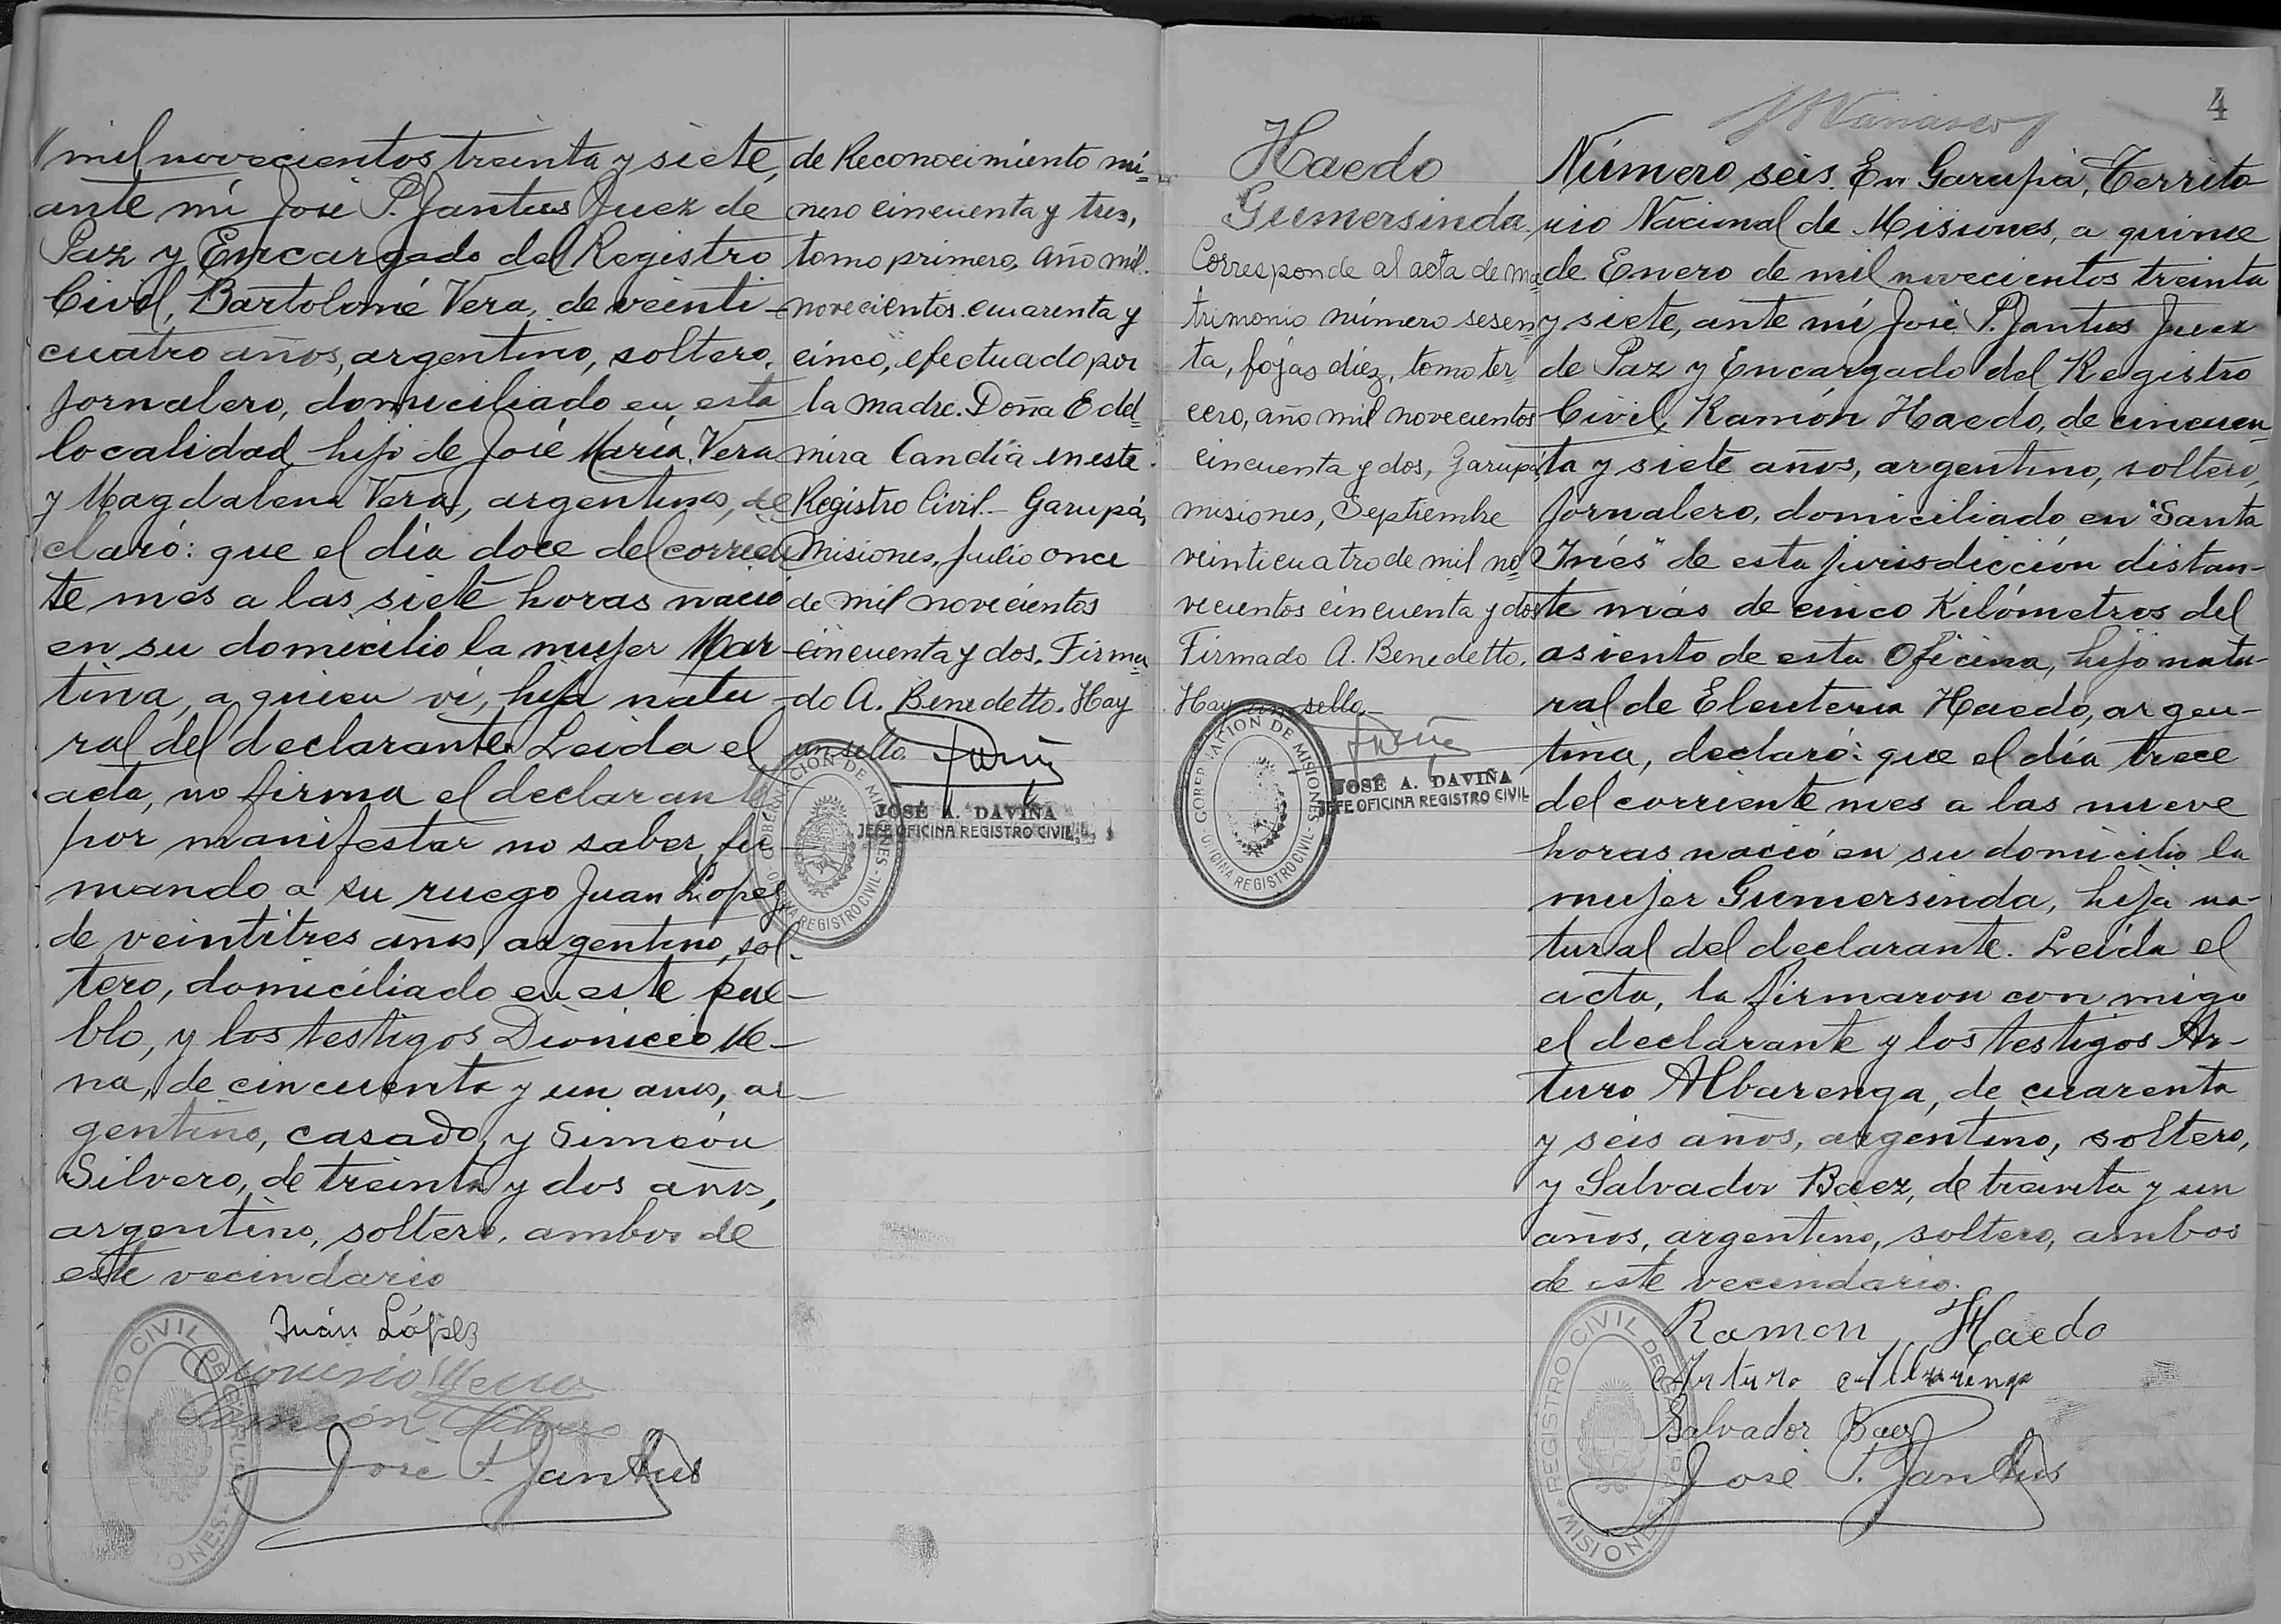 mil novecientos treinta y siete,
ante mí José P. Jantus Juez de
Paz y Encargado del Registro
Civil, Bartolomé Vera, de veinti-
cuatro años, argentino, soltero,
jornalero, domiciliado en esta
localidad, hijo de José María Vera
y Magdalena Vera, argentinos, de
claró: que el día doce del corrien
te mes a las siete horas nació
en su domicilio la mujer Mar-
tina, a quien ví, hija natu-
ral del declarante. Leida el
acta, no firma el declarante
por manifestar no saber, fir-
mando a su ruego Juan Lopez,
de veintitres años, argentino, sol-
tero, domiciliado en este pue-
blo, y los testigos Dionicio Me-
na, de cincuenta y un años, ar-
gentino, casado, y Simeón
Silvero, de treinta y dos años,
argentino, soltero, ambos de
este vecindario
Juán López
Dionisio Mena
Simeón Silvero
José P. Jantus
de Reconocimiento nú=
mero cincuenta y tres,
tomo primero, año mil
novecientos cuarenta y
cinco, efectuado por
la madre. Doña Edel=
mira Candia en este
Registro Civil.- Garupá,
Misiones, Julio once
de mil novecientos
cincuenta y dos. Firma
do A. Benedetto. Hay
un sello.
GOBERNACION DE MISIONES
OFICINA REGISTRO CIVIL
JOSÉ A. DAVIÑA
JEFE OFICINA REGISTRO CIVIL
Haedo
Gumersinda
Corresponde al acta de ma=
trimonio número sesen
ta, fojas diez, tomo ter=
cero, año mil novecientos
cincuenta y dos, Garupá,
misiones, Septiembre
veinticuatro de mil no=
vecientos cincuenta y dos
Firmado A. Benedetto.
Hay un sello-
GOBERNACION DE MISIONES
OFICINA REGISTRO CIVIL
JOSÉ A. DAVIÑA
JEFE OFICINA REGISTRO CIVIL
4
Número seis. En Garupá, Territo
rio Nacional de Misiones, a quince
de Enero de mil novecientos treinta
y siete, ante mí José P. Jantus Juez
de Paz y Encargado del Registro
Civil, Ramón Haedo, de cincuen-
ta y siete años, argentino, soltero,
jornalero, domiciliado en "Santa
Inés" de esta jurisdicción distan-
te más de cinco Kilómetros del
asiento de esta Oficina, hijo natu-
ral de Eleuteria Haedo, argen-
tina, declaró: que el día trece
del corriente mes a las nueve
horas nació en su domicilio la
mujer Gumersinda, hija na-
tural del declarante. Leída el
acta, la firmaron con migo
el declarante y los testigos Ar-
turo Albarenga, de cuarenta
y séis años, argentino, soltero,
y Salvador Baez, de treinta y un
años, argentino, soltero, ambos
de este vecindario.
Ramon Haedo
Arturo Albarenga
Salvador Baez
José P. Jantus
REGISTRO CIVIL DE GARUPA
MISIONES